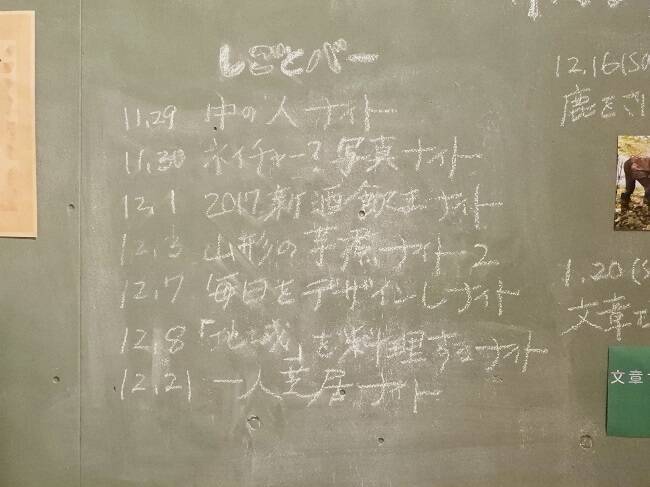 しごとバー
11.29 中の人ナイト
11.30 ネイチャー?写真ナイト
12.1 2017新酒飲エナイト
12.3 山形の芋煮ナイト2
12.7 毎日をデザインしナイト
12.8 「地域」を料理するナイト
12.21 一人芝居ナイト
12.16(
鹿をさ
1.20(
文章
文章